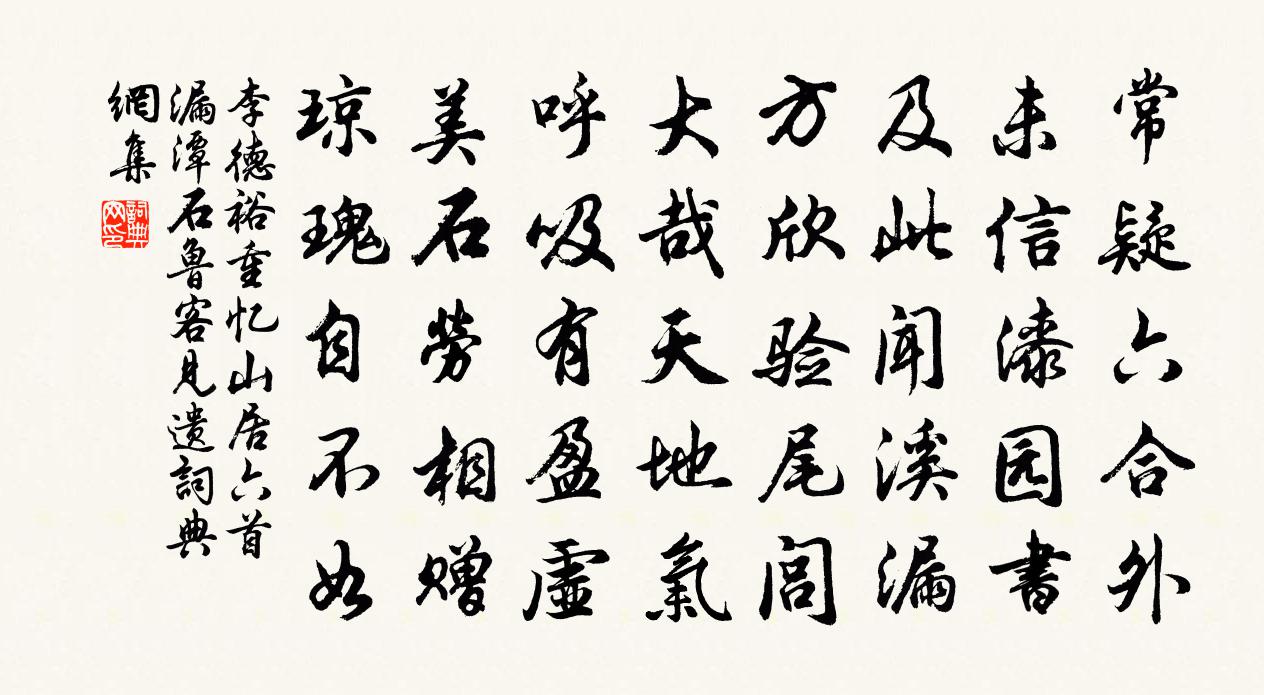 常疑六合外
未信漆园書
及此聞溪漏
方欣验尾閭
大哉天地氣
呼吸有盈虛
美石勞相赠
琼瑰自不如
李德裕重忆山居六首
漏潭石魯客見遗詞典
網集
詞典網印